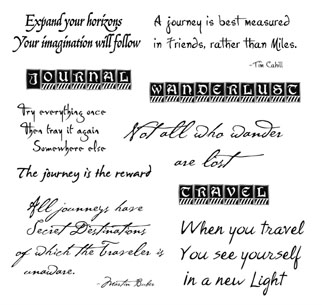 Expand your horizons
Your imagination will follow
A journey is best measured
in Friends, rather than Miles.
-Tim Cahill
JOURNAL
WANDERLUST
Try everything once
Then try it again
Somewhere else
Not all who wander
are lost
The journey is the reward
TRAVEL
All journeys have
Secret Destinations
of which the Traveler is
unaware.
- Martin Buber
When you travel
You see yourself
in a new Light